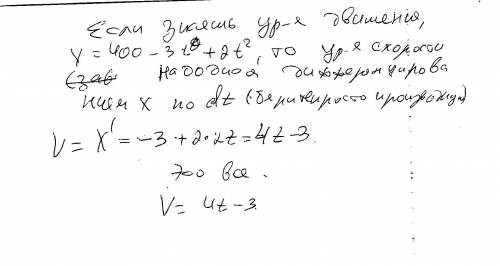 Если знаешь ур-я движения,
x = 400 - 3t + 2t², то ур-я скорости
находим дифференцирова
нием x по dt (бери просто производную)
V = X' = -3 + 2·2t = 4t - 3.
это все.
V = 4t - 3